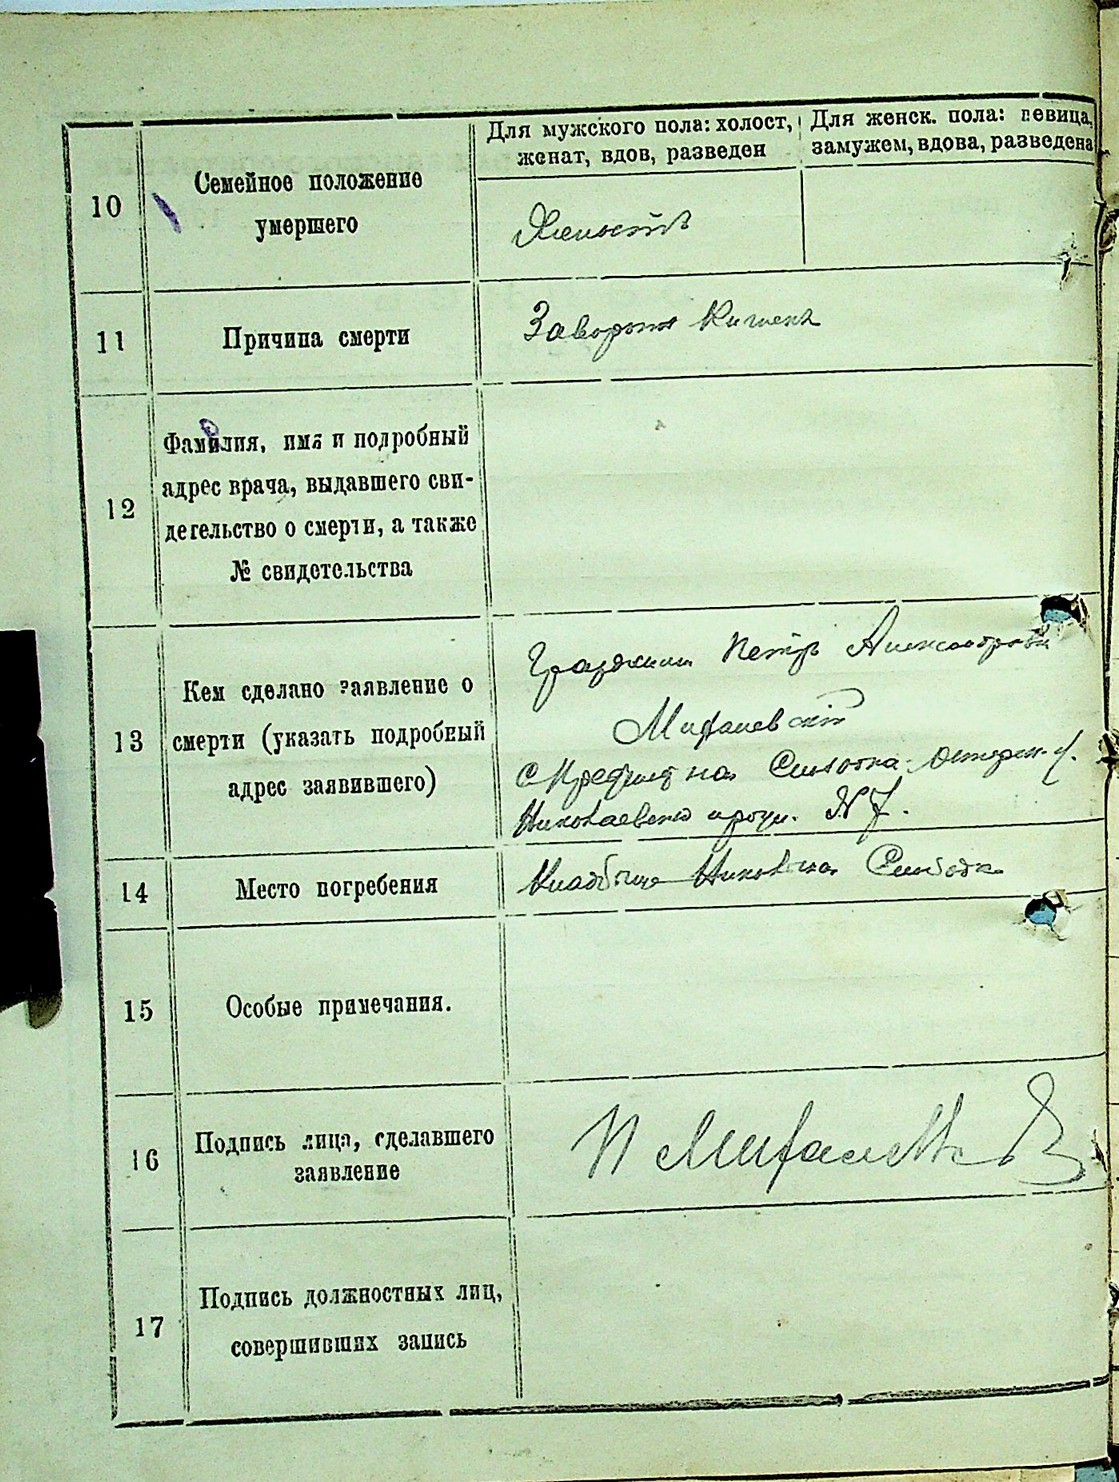 Для мужского пола: холост, женат, вдов, разведен
Для женск. пола: девица, замужем, вдова, разведена
10
Семейное положение
умершего
11
Причина смерти
Заворот Кишек
12
Фамилия, имя и подробный
адрес врача, выдавшего сви-
детельство о смерти, а также
№ свидетельства
13
Кем сделано заявление о
смерти (указать подробный
адрес заявившего)
Гражданин Петр Александрович
Мифалевский
Слободка
№ 7.
14
Место погребения
Кладбище Слободка
15
Особые примечания.
16
Подпись лица, сделавшего
заявление
П Мифалевск
17
Подпись должностных лиц,
совершивших запись